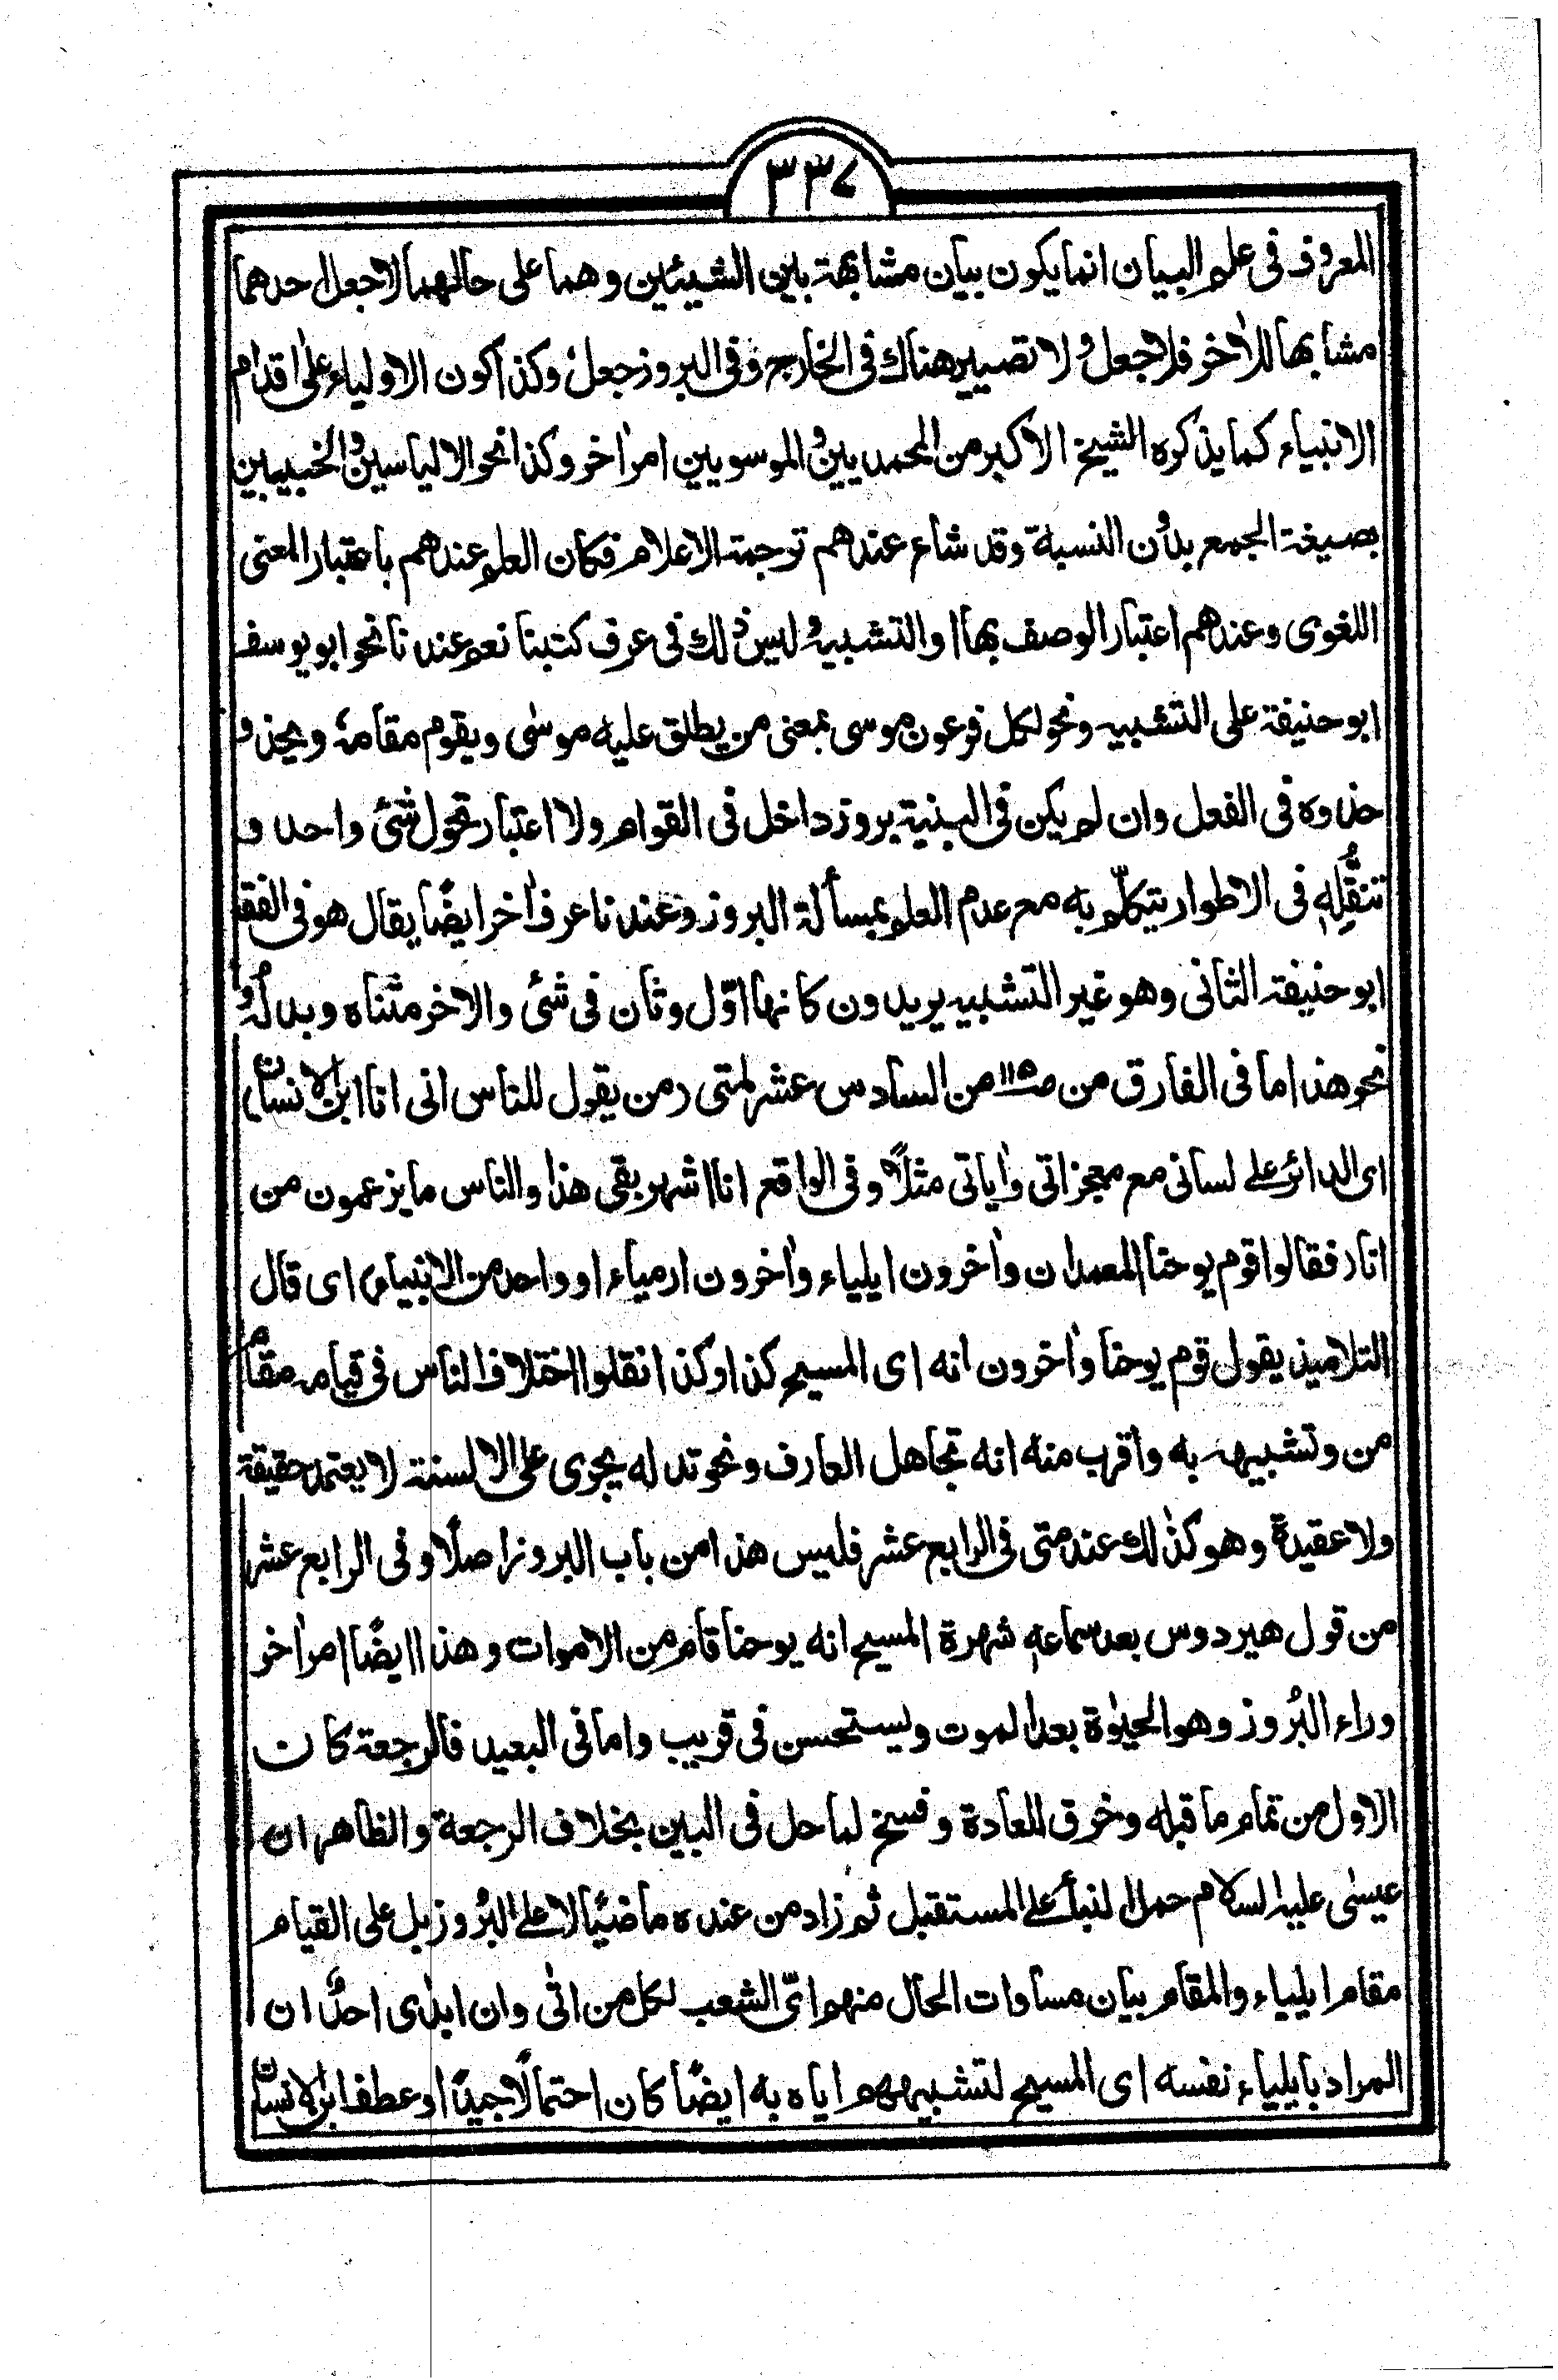 ٣٣٧
المعروف فى علم البيان انما يكون بيان مشابهة بين الشيئين وهما على حالهما لا جعل احدهما
مشابها للاٰخر فلا جعل ولا تصيير هناك فى الخارج وفى البروز جعل وكذا كون الاولياء علىٰ اقدام
الانبياء كما يذكره الشيخ الاكبر من المحمديين والموسويين امر اٰخر وكذا نحو الالياسين والخبيبين
بصيغة الجمع بدون النسبة وقد شاع عندهم ترجمة الاعلام فكان العلم عندهم باعتبار المعنى
اللغوى وعندهم اعتبار الوصف بها او التشبيه وليس ذلك فى عرف كتبنا نعم عندنا نحو ابو يوسف
ابو حنيفة على التشبيه ونحو لكل فرعون موسى بمعنى من يطلق عليه موسٰى ويقوم مقامهٗ ويحذو
حذوه فى الفعل وان لم يكن فى البنية بروز داخل فى القوام ولا اعتبار تحول شئ واحد و
تنقُّلِهٖ فى الاطوار يتكلّم به مع عدم العلم بمسألة البروز وعندنا عرف اٰخر ايضًا يقال هو فى الفقه
ابو حنيفة الثانى وهو غير التشبيه يريدون كانهما اوّل وثان فى شئ والاخر مثناه وبدلهٗ و
نحو هذا اما فى الفارق من صـ١١٥ من السادس عشر لمتى (من يقول للناس انى انا ابن الانسان)
اى الدائر على لسانى مع معجزاتى واٰياتى مثلًا وفى الواقع انا اشهر بقى هذا والناس ما يزعمون من
انا (فقالوا قوم يوحنا المعمدان واٰخرون ايلياء واٰخرون ارمياء او واحد من الانبياء) اى قال
التلاميذ يقول قوم يوحنا واٰخرون انه اى المسيح كذا وكذا نقلوا اختلاف الناس فى قيامه مقام
من وتشبيهه به واقرب منه انه تجاهل العارف ونحو تدله يجرى على الالسنة لا يعتمد حقيقة
ولا عقيدةً وهو كذٰلك عند متى فى الرابع عشر فليس هذا من باب البروز اصلًا وفى الرابع عشر
من قول هيردوس بعد سماعهٖ شهرة المسيح انه يوحنا قام من الاموات وهذا ايضًا امر اٰخر
وراء البُروز وهو الحيٰوة بعد الموت ويستحسن فى قريب واما فى البعيد فالرجعة كانت
الاول من تمام ما قبله وخرق للعادة وفسخ لما حل فى البين بخلاف الرجعة والظاهر ان
عيسٰى عليه السلام حمل النبأ على المستقبل ثم زاد من عنده ماضيًا لا على البُروز بل على القيام
مقام ايلياء والمقام بيان مساوات الحال منهم اىّ الشعب لكل من اتٰى وان ابدٰى احدٌ ان
المراد بايلياء نفسه اى المسيح لتشبيههم اياه به ايضًا كان احتمالًا جيدًا او عطف ابن الانسان